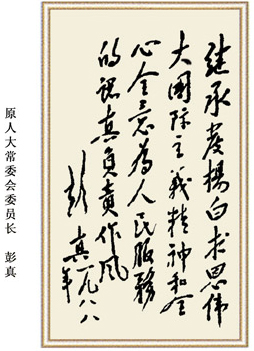 继承发扬白求恩伟
大国际主义精神和全
心全意为人民服务
的认真负责作风
彭真
一九八八年
原人大常委会委员长 彭真